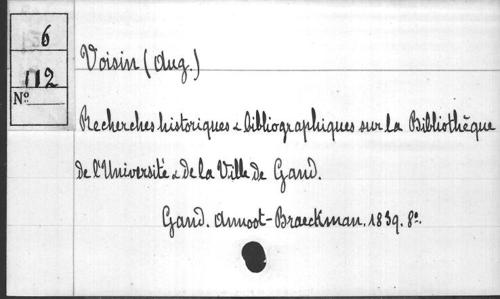 6
112
N⁰
Voisin (Aug.)
Recherches historiques & bibliographiques sur la Bibliothèque
de l'Université & de la Ville de Gand.
Gand. Annoot-Braeckman, 1839. 8⁰.